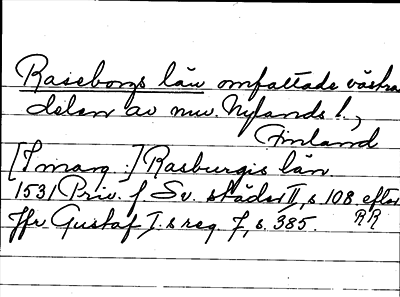 Raseborgs län omfattade västra
delen av nuv. Nylands l.,
Finland
[I marg.:] Rasburgis län
1531 Priv. f Sv. städer II, s 108 efter
RR
Jfr Gustaf I:s reg. 7, s. 385.